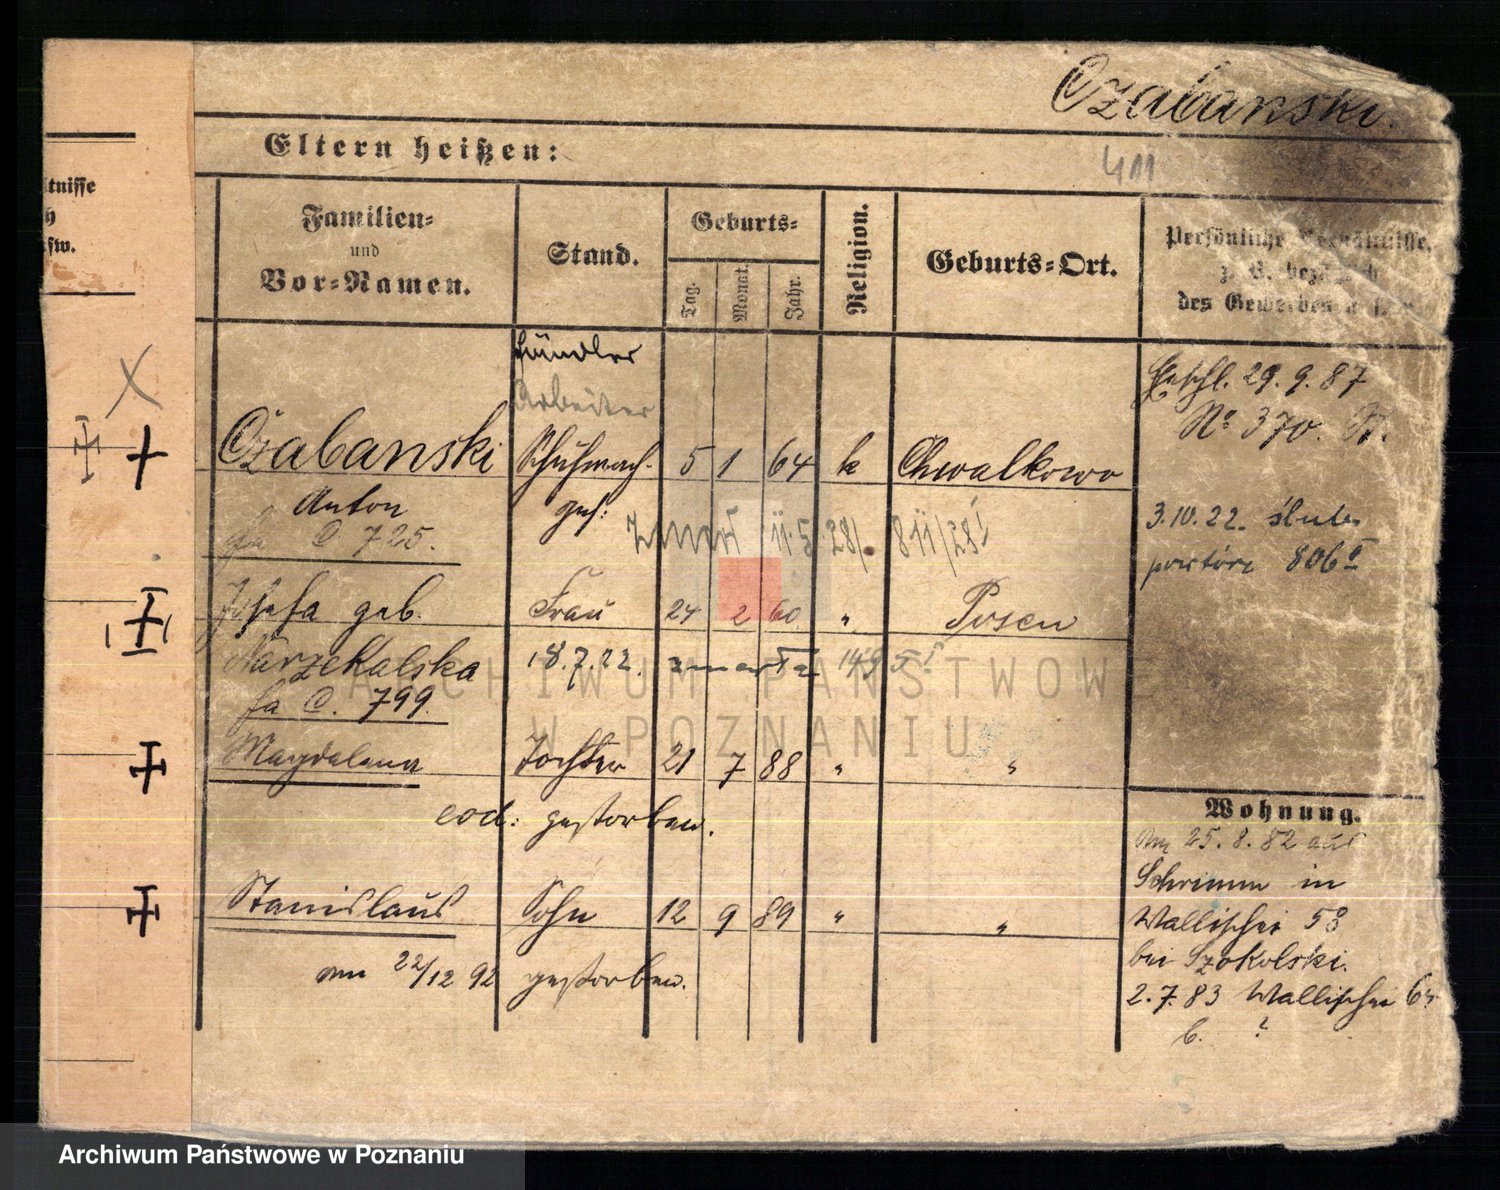 Czabanski.
Eltern heißen:
411
tnisse
h
sw.
Familien-
und
Vor-Namen.
Stand.
Geburts-
Tag.
Monat.
Jahr.
Religion.
Geburts-Ort.
Persönliche Verhältnisse,
z. B. bezüglich
des Gewerbes u. s. w.
Händler
Arbeiter
Czabanski Schuhmach. 5 1 64 k Chwalkowo
Anton ges:
fa C 725.
Eheschl. 29. 9. 87
No 370. II.
3.10.22. ślub
powtórz 806
Josefa geb. Frau 24 2 60 " Posen
Narzekalska 18.7.22. zmarła
fa C. 799.
Magdalena Tochter 21 7 88 " "
eod: gestorben.
Stanislaus Sohn 12 9 89 " "
am 22/12 92 gestorben.
Wohnung.
Am 25. 8. 82 aus
Schrimm in
Wallischei 58
bei Szokolski.
2. 7. 83 Wallischei 64
b. ?
ARCHIWUM PAŃSTWOWE
W POZNANIU
Archiwum Państwowe w Poznaniu